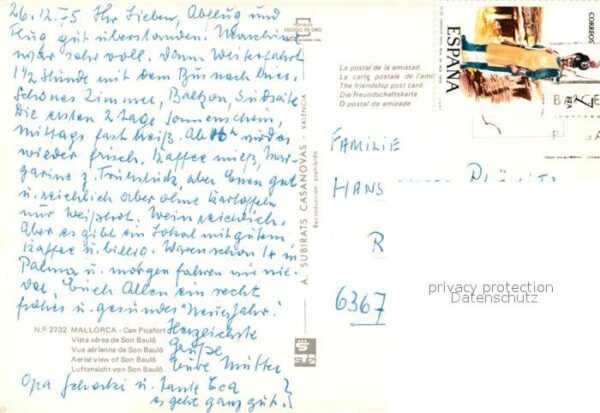 26.12.75 Ihr Lieben, Abflug und
Flug gut überstanden. Maschine
war sehr voll. Dann Weiterfahrt
1 1/2 Stunde mit dem Bus nach hier.
Schönes Zimmer, Balkon, Südseite
Die ersten 2 Tage Sonnenschein,
mittags fast heiß. Ab 16 wieder
wieder frisch. Kaffee mieß, Mar-
garine z. Frühstück, aber Essen gut
u. reichlich aber ohne Kartoffeln
nur Weißbrot. Wein reichlich.
Aber es gibt ein Lokal mit gutem
Kaffee u. billig. Waren schon 1x in
Palma u. morgen fahren wir
Euch Allen ein recht
frohes u. gesundes "Neues Jahr".
Herzlichste
Grüße
Eure Mutter
Opa u. Tante
es geht ganz gut!
Nº 2732 MALLORCA - Can Picafort
Vista aérea de Son Bauló
Vue aérienne de Son Bauló
Aerial view of Son Bauló
Luftansicht von Son Bauló
POSTALES
ESCUDO DE ORO
A. SUBIRATS CASANOVAS - VALENCIA
Reproducción prohibida
La postal de la amistad
La carte postale de l'ami
The friendship post card
Die Freundschaftskarte
O postal da amizade
CORREOS
ESPAÑA
7 PTA
FAMILIE
HANS
R
6367
privacy protection
Datenschutz